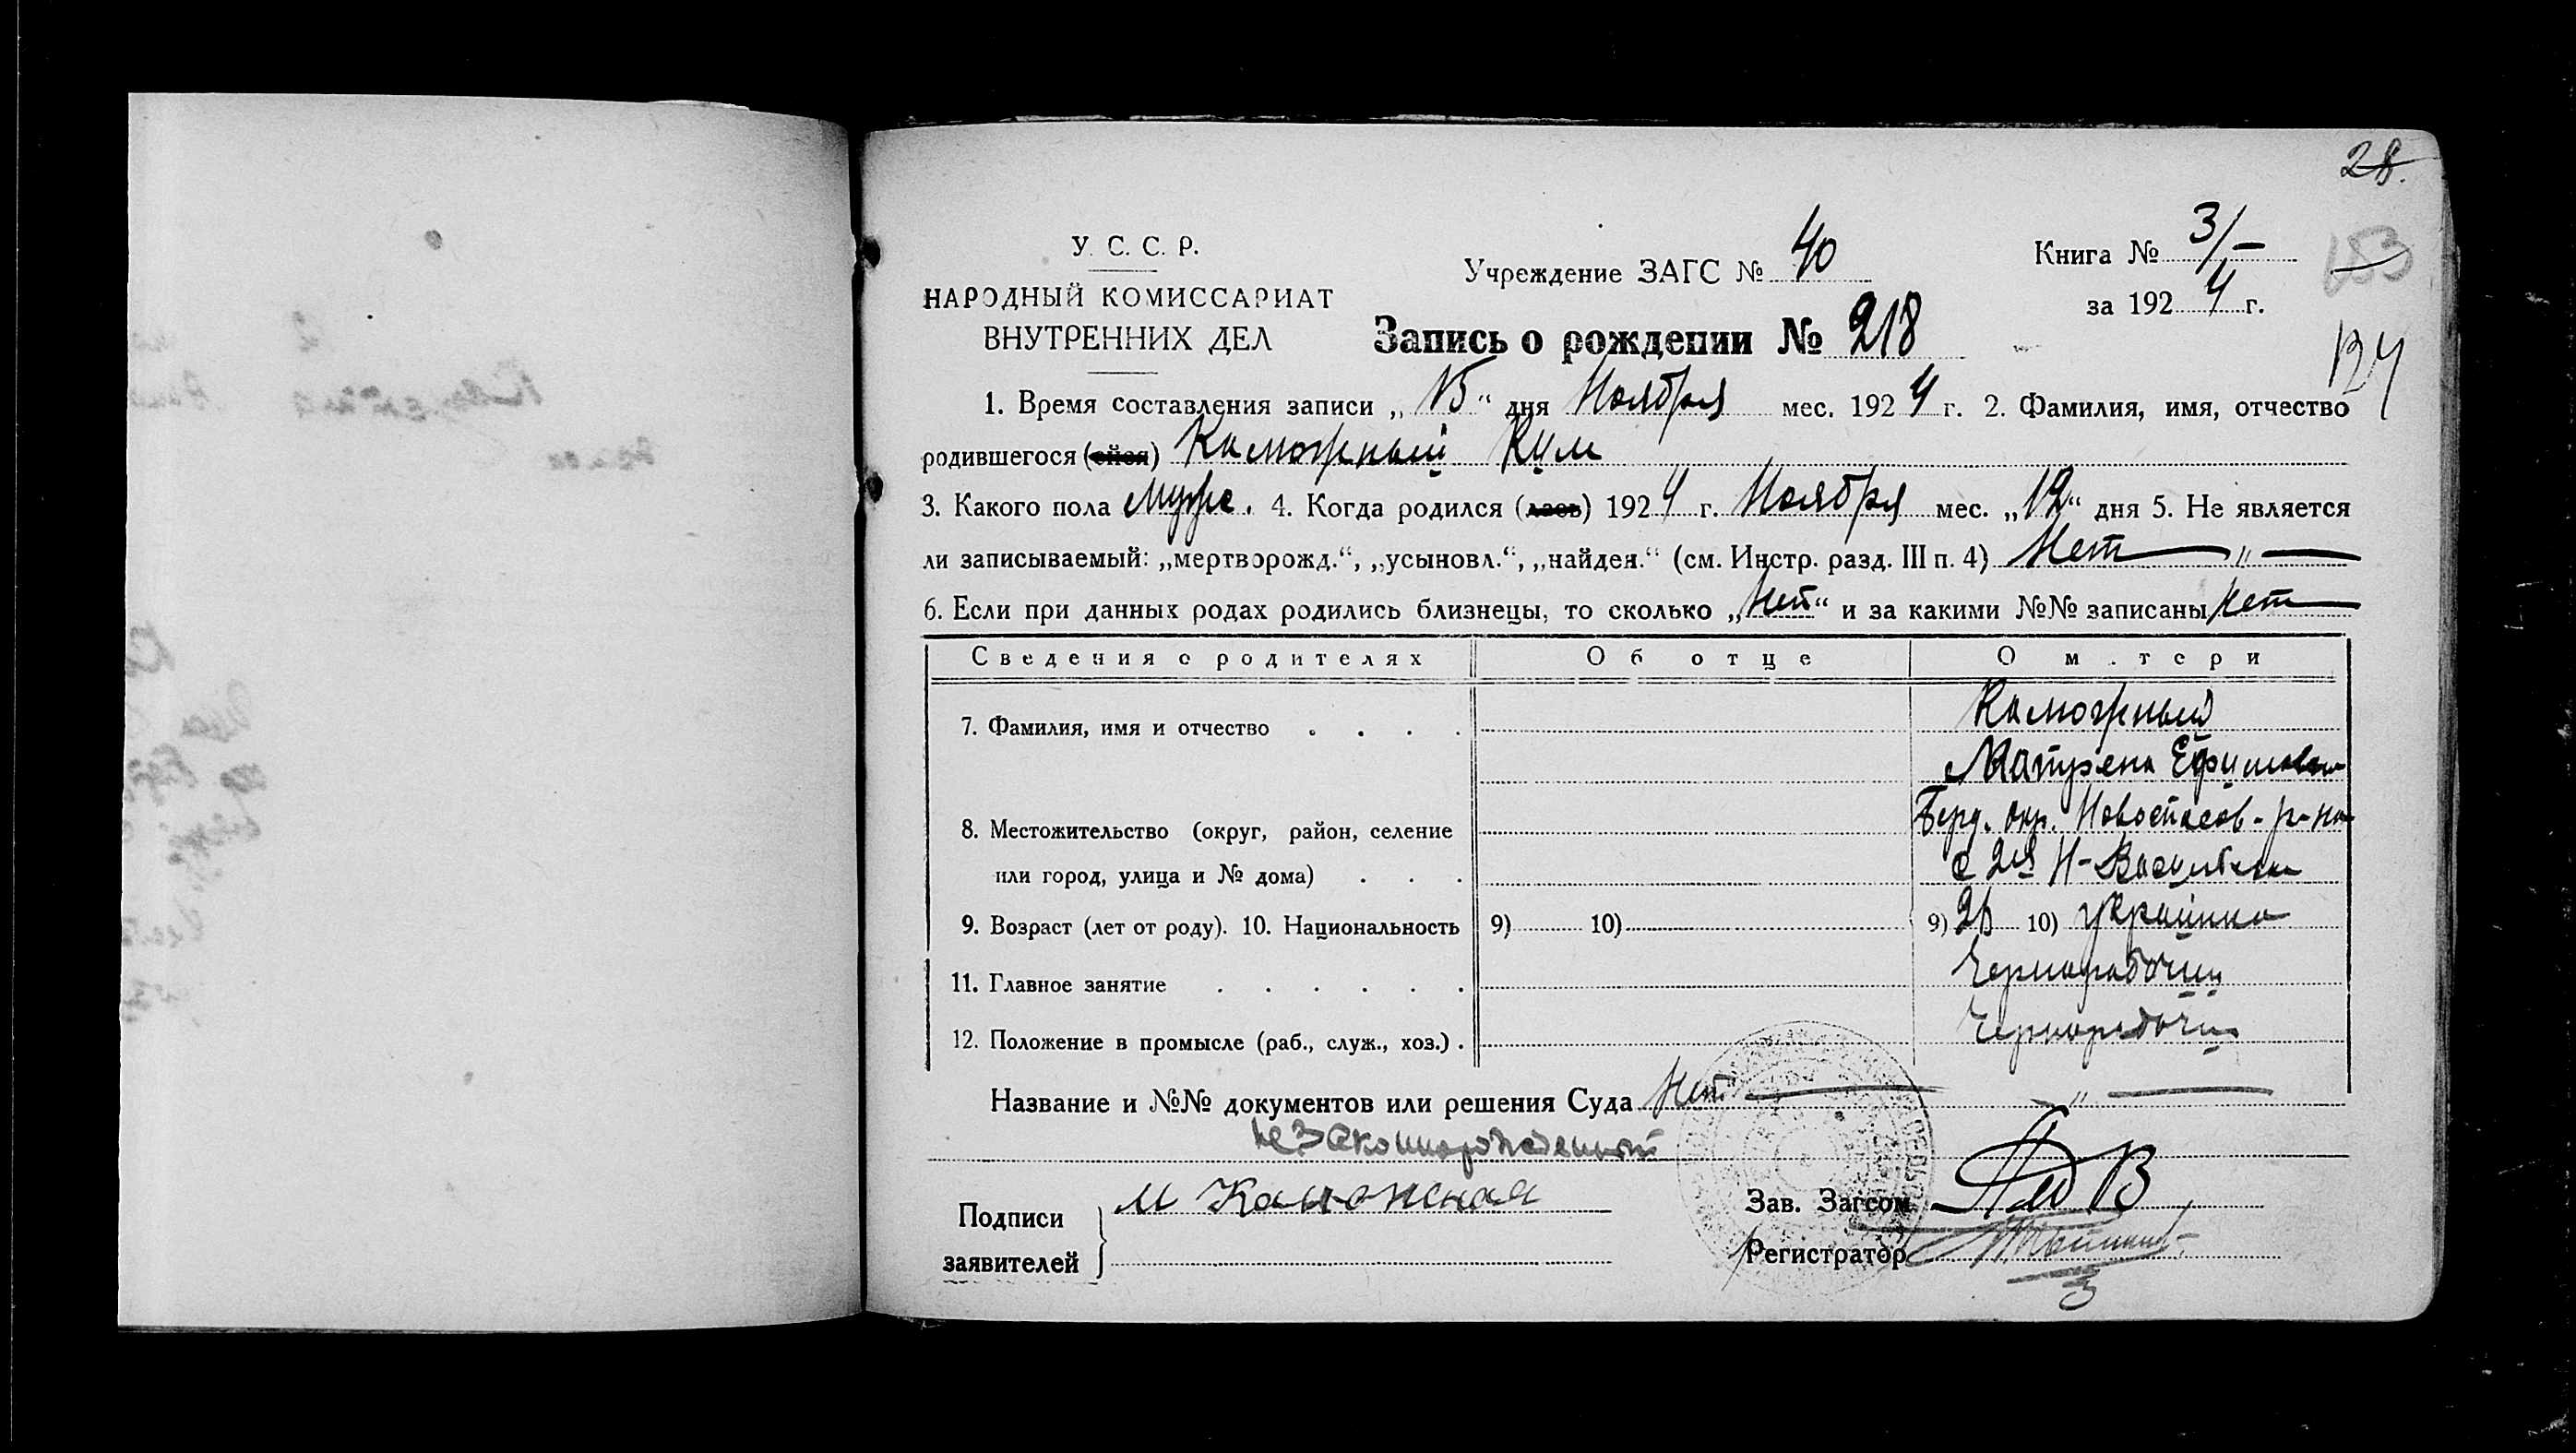 28.
У. С. С. Р.
НАРОДНЫЙ КОМИССАРИАТ
ВНУТРЕННИХ ДЕЛ
Учреждение ЗАГС № 40
Книга № 3/-
153
за 1924 г.
Запись о рождении № 218
124
1. Время составления записи „15“ дня Ноября мес. 1924 г. 2. Фамилия, имя, отчество
родившегося (ейся) Каможный Ким
3. Какого пола Мужс. 4. Когда родился (лась) 1924 г. Ноября мес. „12“ дня 5. Не является
ли записываемый: „мертворожд.“, „усыновл.“, „найден.“ (см. Инстр. разд. III п. 4) Нет — „ —
6. Если при данных родах родились близнецы, то сколько „Нет“ и за какими №№ записаны Нет
Сведения о родителях Об отце О матери
7. Фамилия, имя и отчество . . . . Каможный
Матрена Ефимовна
8. Местожительство (округ, район, селение Берд. окр. Новоспасов-р-на
или город, улица и № дома) . . . с 2я Н-Васильевка
9. Возраст (лет от роду). 10. Национальность 9) 10) 9) 10) украинка
11. Главное занятие . . . . . . Чернорабочий
12. Положение в промысле (раб., служ., хоз.) . Чернорабочий
Название и №№ документов или решения Суда Нет — „ —
незаконнорожденный
Подписи заявителей М Каможная
Зав. Загсом
Регистратор